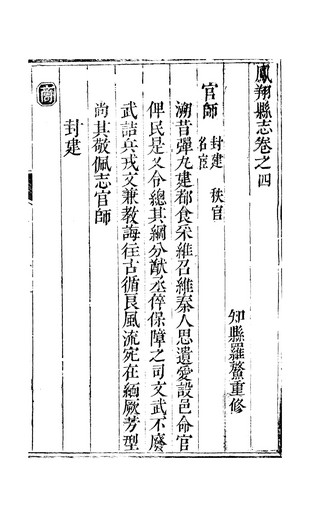 鳳翔縣志卷之四
知縣羅鰲重修
官師 封建 秩官 名宦
溯昔彈丸建都食采維召維秦人思遺愛設邑命官
俾民是乂令總其綱分猷丞倅保障之司文武不廢
武詰兵戎文兼教誨往古循良風流宛在緬厥芳型
尚其敬佩志官師
封建